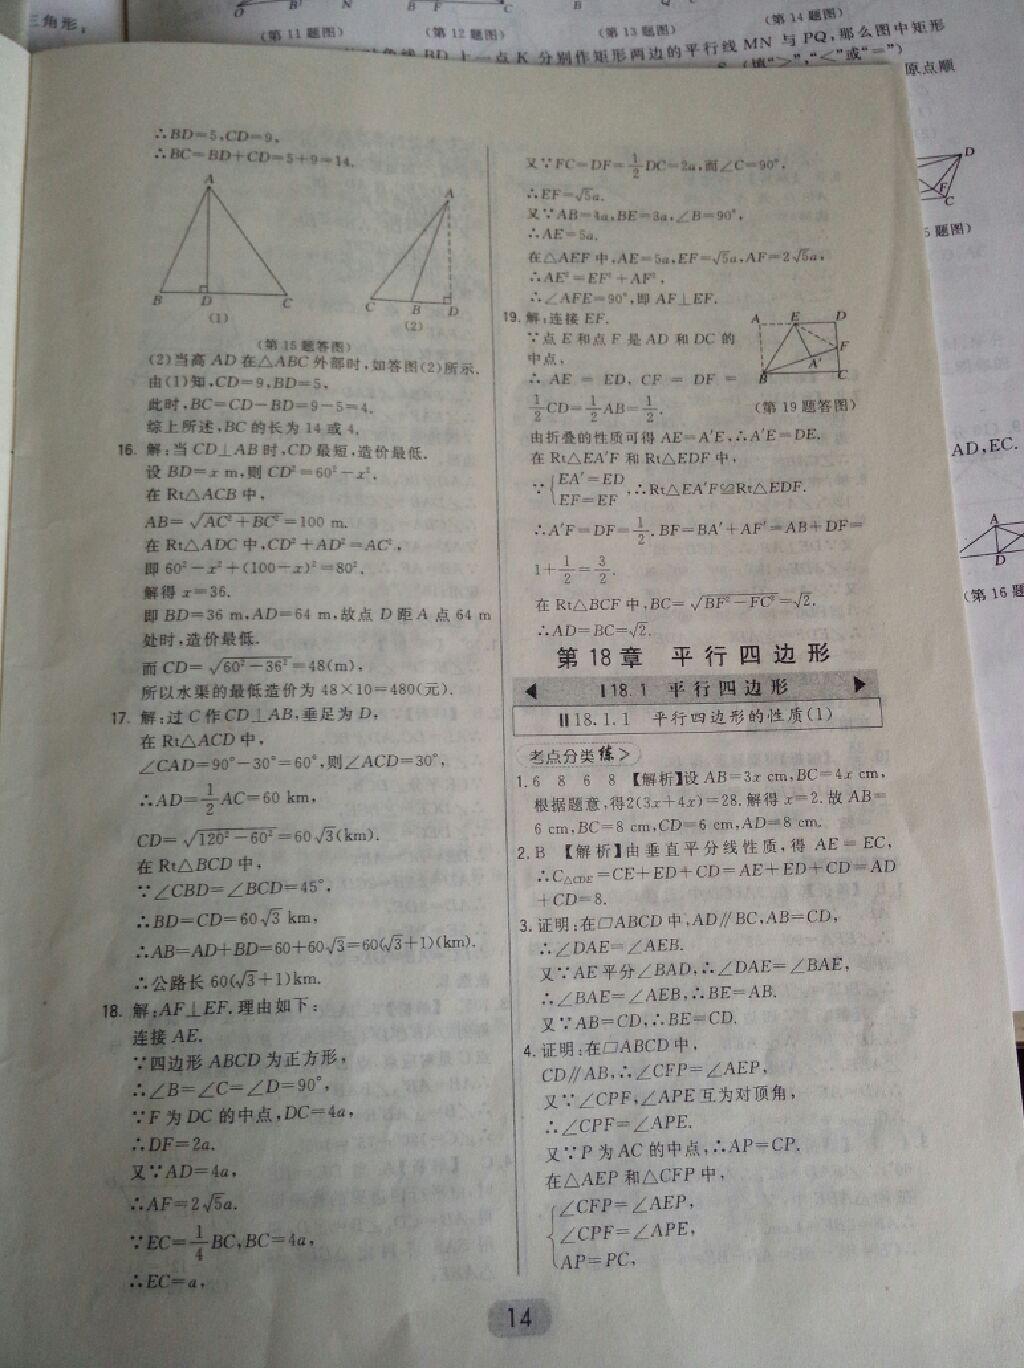 三角形,
O B' N B F C B Q C
(第 11 题图) (第 12 题图) (第 13 题图) (第 14 题图)
上一点 K 分别作矩形两边的平行线 MN 与 PQ,那么图中矩形
(填“>”,“<”或“=”)
原点顺
D
F
C
题图)
AD,EC.
A
D
(第 16 题
∴BD=5,CD=9,
∴BC=BD+CD=5+9=14.
A
B D C
(1)
A
C B D
(2)
(第 15 题答图)
(2)当高 AD 在△ABC 外部时,如答图(2)所示.
由(1)知,CD=9,BD=5,
此时,BC=CD−BD=9−5=4.
综上所述,BC 的长为 14 或 4.
16. 解:当 CD⊥AB 时,CD 最短,造价最低.
设 BD=x m,则 CD²=60²−x².
在 Rt△ACB 中,
AB=√(AC²+BC²)=100 m.
在 Rt△ADC 中,CD²+AD²=AC²,
即 60²−x²+(100−x)²=80².
解得 x=36.
即 BD=36 m,AD=64 m,故点 D 距 A 点 64 m
处时,造价最低.
而 CD=√(60²−36²)=48(m),
所以水渠的最低造价为 48×10=480(元).
17. 解:过 C 作 CD⊥AB,垂足为 D,
在 Rt△ACD 中,
∠CAD=90°−30°=60°,则∠ACD=30°,
∴AD=1/2AC=60 km,
CD=√(120²−60²)=60√3(km).
在 Rt△BCD 中,
∵∠CBD=∠BCD=45°,
∴BD=CD=60√3 km,
∴AB=AD+BD=60+60√3=60(√3+1)(km).
∴公路长 60(√3+1)km.
18. 解:AF⊥EF.理由如下:
连接 AE.
∵四边形 ABCD 为正方形,
∴∠B=∠C=∠D=90°,
∵F 为 DC 的中点,DC=4a,
∴DF=2a.
又∵AD=4a,
∴AF=2√5a.
∵EC=1/4BC,BC=4a,
∴EC=a,
又∵FC=DF=1/2DC=2a,而∠C=90°.
∴EF=√5a.
又∵AB=4a,BE=3a,∠B=90°,
∴AE=5a.
在△AEF 中,AE=5a,EF=√5a,AF=2√5a,
∴AE²=EF²+AF²,
∴∠AFE=90°,即 AF⊥EF.
19. 解:连接 EF.
∵点 E 和点 F 是 AD 和 DC 的
中点,
∴ AE = ED, CF = DF =
1/2CD=1/2AB=1/2.
A E D
F
A'
B C
(第 19 题答图)
由折叠的性质可得 AE=A'E,∴A'E=DE.
在 Rt△EA'F 和 Rt△EDF 中,
∵{EA'=ED
EF=EF ,∴Rt△EA'F≌Rt△EDF.
∴A'F=DF=1/2,BF=BA'+AF'=AB+DF=
1+1/2=3/2.
在 Rt△BCF 中,BC=√(BF²−FC²)=√2.
∴AD=BC=√2.
第 18 章 平行四边形
18.1 平行四边形
18.1.1 平行四边形的性质(1)
考点分类练>
1. 6 8 6 8 【解析】设 AB=3x cm,BC=4x cm,
根据题意,得2(3x+4x)=28.解得 x=2.故 AB=
6 cm,BC=8 cm,CD=6 cm,AD=8 cm.
2. B 【解析】由垂直平分线性质,得 AE=EC,
∴C△CDE=CE+ED+CD=AE+ED+CD=AD
+CD=8.
3. 证明:在□ABCD 中,AD∥BC,AB=CD,
∴∠DAE=∠AEB.
又∵AE 平分∠BAD,∴∠DAE=∠BAE,
∴∠BAE=∠AEB,∴BE=AB.
又∵AB=CD,∴BE=CD.
4. 证明:在□ABCD 中,
CD∥AB,∴∠CFP=∠AEP,
又∵∠CPF,∠APE 互为对顶角,
∴∠CPF=∠APE.
又∵P 为 AC 的中点,∴AP=CP.
在△AEP 和△CFP 中,
{∠CFP=∠AEP,
∠CPF=∠APE,
AP=PC,
14